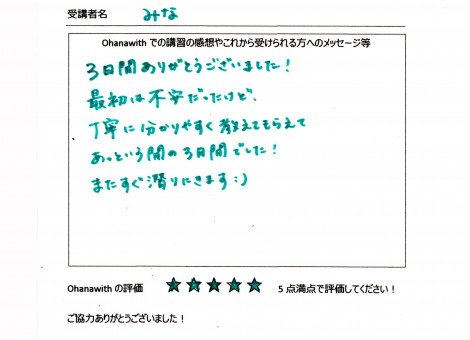 受講者名 みな
Ohanawith での講習の感想やこれから受けられる方へのメッセージ等
3日間ありがとうございました！
最初は不安だったけど、
丁寧に分かりやすく教えてもらえて
あっという間の3日間でした！
またすぐ潜りにきます:)
Ohanawith の評価 ★★★★★ 5 点満点で評価してください！
ご協力ありがとうございました！